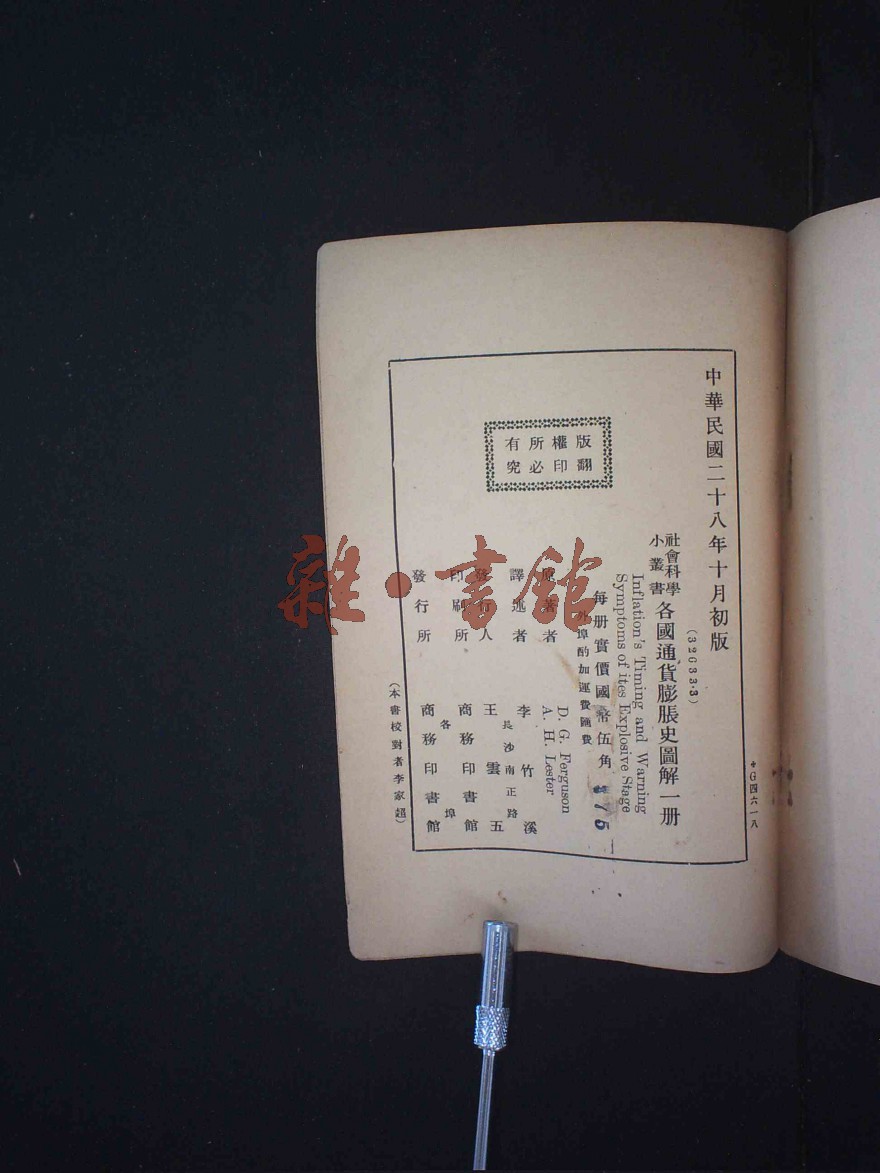 中華民國二十八年十月初版
(32633·3)
社會科學
小叢書
各國通貨膨脹史圖解一册
Inflation's Timing and Warning
Symptoms of ites Explosive Stage
每册實價國幣伍角
外埠酌加運費匯費
原著者 D. G. Ferguson
A. H. Lester
譯述者 李竹溪
長沙南正路
發行人 王雲五
印刷所 商務印書館
各埠
發行所 商務印書館
(本書校對者李家超)
版權所有
翻印必究
G四六一八
雜·書館